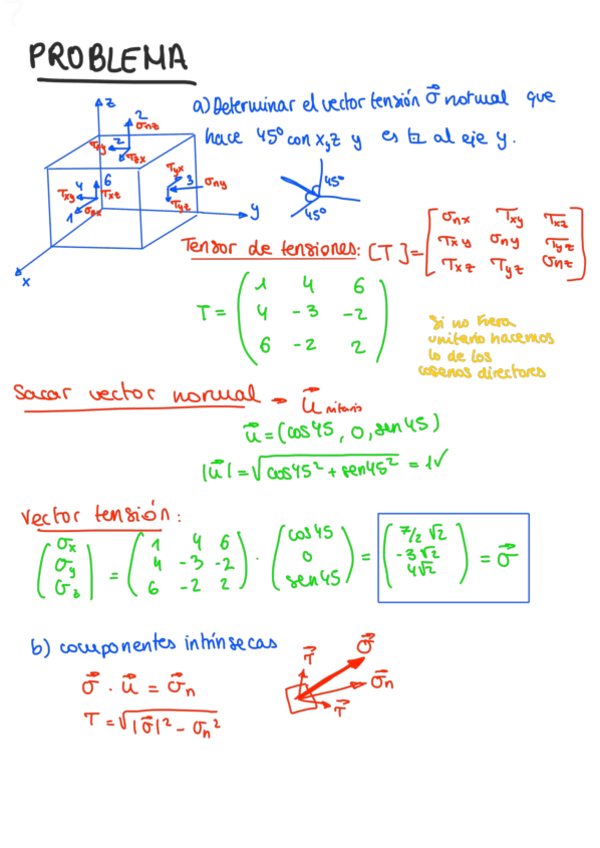 PROBLEMA
a) Determinar el vector tensión σ⃗ normal que
hace 45º con x,z y es ⊥ al eje y.
z
2
σnz
τzy
2
τzx
4
6
τxy
τxz
1
σnx
τyx
3
σny
τyz
y
x
45º
45º
Tensor de tensiones: [T] =
σnx τxy τxz
τxy σny τyz
τxz τyz σnz
T =
1 4 6
4 -3 -2
6 -2 2
Si no fuera
unitario hacemos
lo de los
cosenos directores
Sacar vector normal → u⃗nitario
u⃗ = (cos45, 0, sen45)
|u⃗| = √cos45² + sen45² = 1✓
Vector tensión:
σx 1 4 6 cos45 7/2 √2
σy = 4 -3 -2 · 0 = -3√2 = σ⃗
σz 6 -2 2 sen45 4√2
b) componentes intrínsecas
σ⃗ · u⃗ = σ⃗n
τ = √|σ⃗|² - σn²
τ⃗
σ⃗
σ⃗n
τ⃗